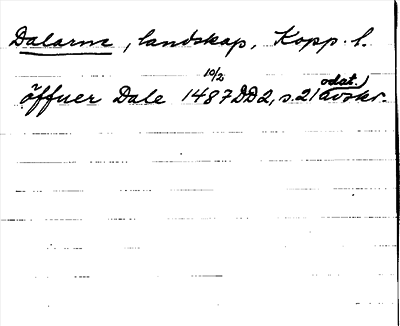 Dalarna, landskap, Kopp. l.
öffuer Dale 1487 10/2 DD2, s. 21 (odat.) avskr.